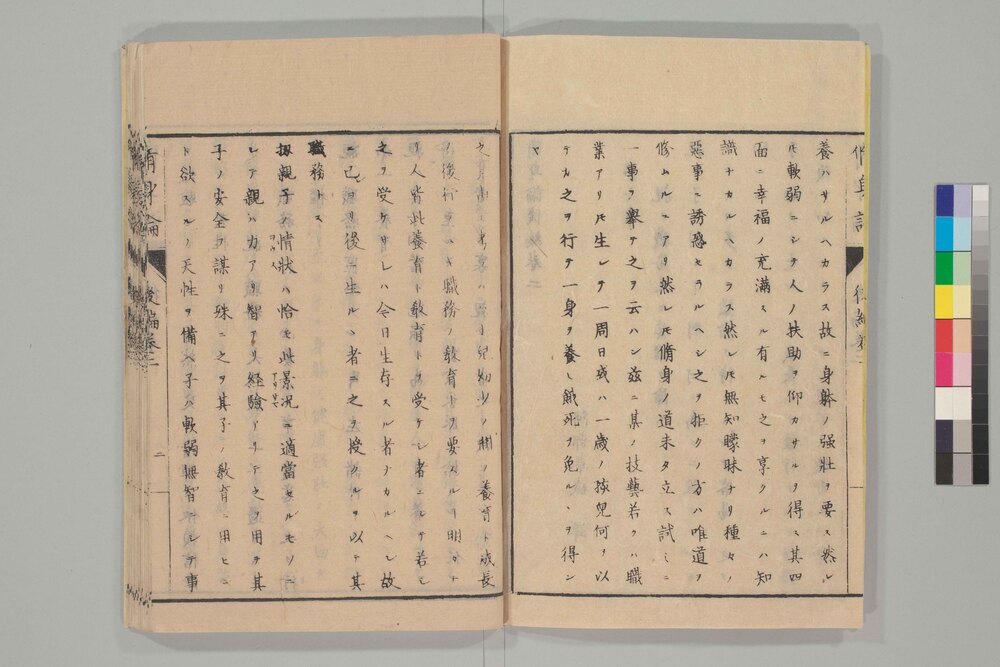 養ハサルヘカラス故ニ身躰ノ強壮ヲ要ス然レ
𪜈軟弱ニシテ人ノ扶助ヲ仰カサルヲ得ス其四
面ニ幸福ノ充満スル有ルモ之ヲ享クルニハ知
識ナカルヘカラス然レ𪜈無知矇昧ナリ種々ノ
惡事ニ誘惑セラルヘシ之ヲ拒クノ方ハ唯道ヲ
修ムルニアリ然レ𪜈脩身ノ道未タ立ス試ミニ
一事ヲ舉ケ之ヲ云ハン茲ニ某ノ技藝若クハ職
業アリ𪜈生レテ一周日或ハ一歳ノ孩兒何ヲ以
テカ之ヲ行テ一身ヲ養ヒ餓死ヲ免ルヽヲ得ン
ヤ
兒幼少ノ間ノ養育ト成長
ノ後行フヘキ職務ノ教育トヲ要スルヿ明カナ
リ人皆此養育ト教育トヲ受ケシ者ニシテ若シ
之ヲ受ケサレハ今日生存スル者ナカルヘシ故
ニ己ヨリ後ニ生ルヽ者ニ之ヲ授クルヲ以テ其
職務トス
扨親子ノ情状ハ恰モ此景况ニ適當セルモノニ
シテ親ハ力アリ智アリ経驗アリテ之ヲ用ヲ其
子ノ安全ヲ謀リ殊ニ之ヲ其子ノ教育ニ用ヒン
ト欲スルノ天性ヲ備ヘ子ハ軟弱無智ニシテ事
脩身論
後編巻二
二